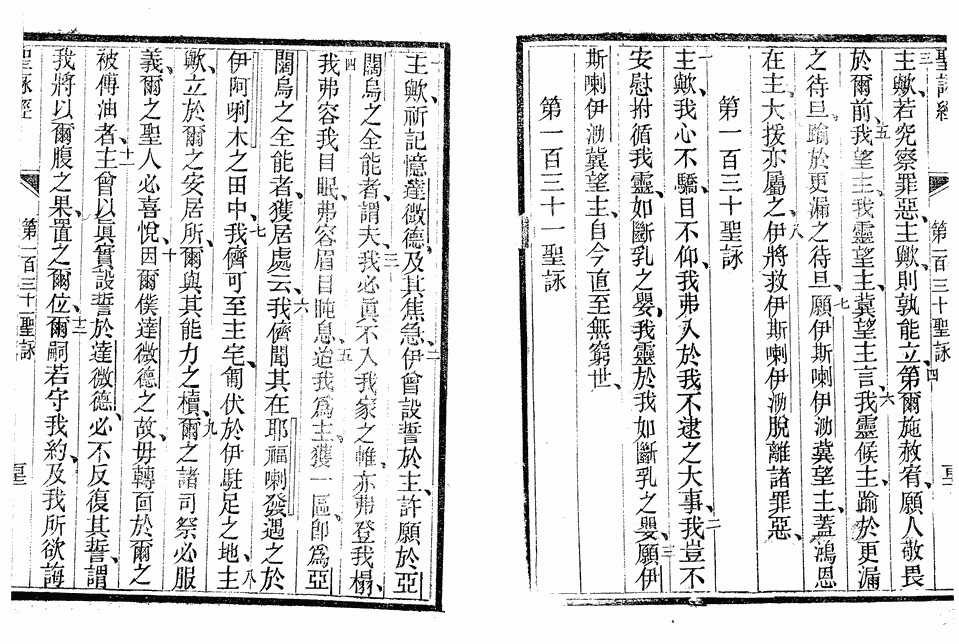 聖詠經
第一百三十聖詠
三主歟、若究察罪惡、主歟、則孰能立、四第爾施赦宥、願人敬畏
於爾前、五我望主、我靈望主、冀望主言、六我靈候主、踰於更漏
之待旦、踰於更漏之待旦、七願伊斯喇伊泐冀望主、蓋鴻恩
在主、大拨亦屬之、八伊將救伊斯喇伊泐脫離諸罪惡、
第一百三十聖詠
一主歟、我心不驕、目不仰、我弗入於我不逮之大事、二我豈不
安慰拊循我靈、如斷乳之嬰、我靈於我、如斷乳之嬰、三願伊
斯喇伊泐冀望主、自今直至無窮世、
第一百三十一聖詠
一主歟、祈記憶達微德、及其焦急、二伊曾設誓於主、許願於亞
闊烏之全能者、謂夫、三我必眞不入我家之帷、亦弗登我榻、
四我弗容我目眠、弗容眉目盹息、五迨我爲主、獲一區、卽爲亞
闊烏之全能者、獲居處云、六我儕聞其在耶福喇發、遇之於
伊阿唎木之田中、七我儕可至主宅、匍伏於伊駐足之地、八主
歟、立於爾之安居所、爾與其能力之櫝、九爾之諸司祭必服
義、爾之聖人必喜悅、十因爾僕達微德之故、毋轉面於爾之
被傅油者、十一主曾以眞實設誓於達微德、必不反復其誓、謂
我將以爾腹之果、置之爾位、十二爾嗣若守我約、及我所欲誨
聖詠經
第一百三十一聖詠